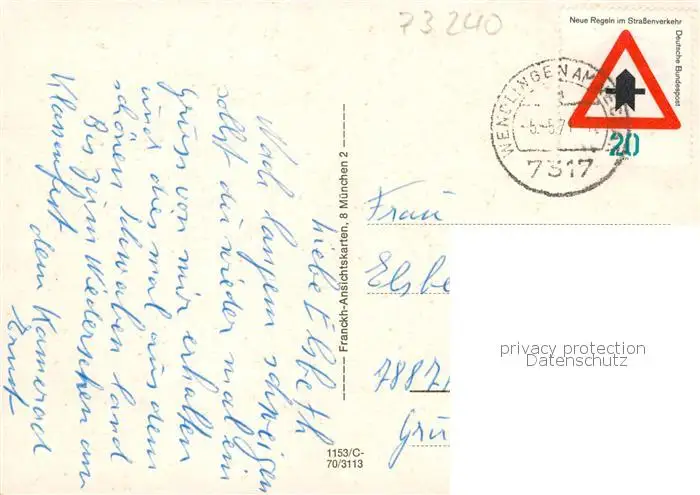 73240
Neue Regeln im Straßenverkehr
Deutsche Bundespost
20
WENDLINGEN AM
7317
Liebe Elsbeth
Nach langem schweigen
sollst du wieder mal ein
Gruss von mir erhalten
und dies mal aus dem
schönen Schwabenland
Bis zum Wiedersehen am
Klassenfest
dein Kamerad
Ernst
Franckh-Ansichtskarten, 8 München 2
1153/C-
70/3113
Frau
Elsbe
7887
privacy protection
Datenschutz